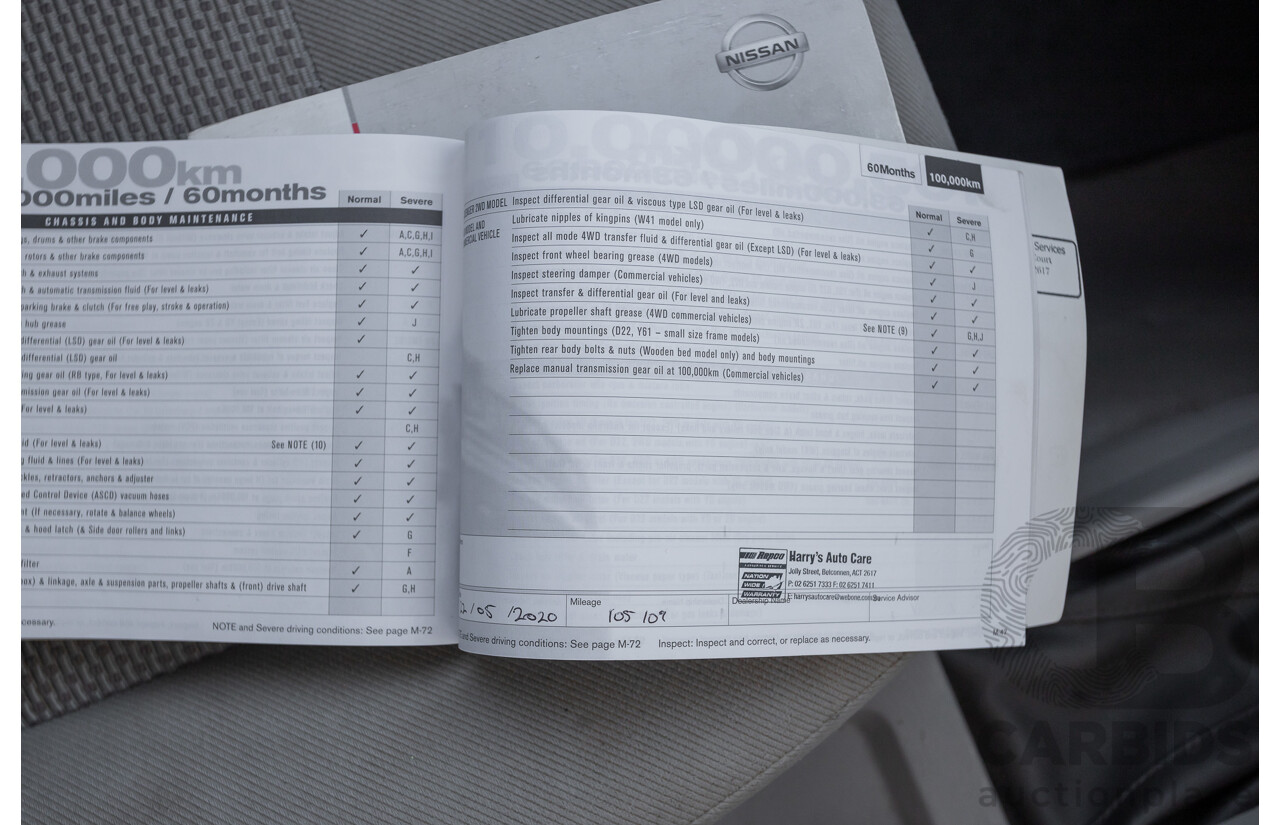 NISSAN
000km
000miles / 60months
Normal Severe
CHASSIS AND BODY MAINTENANCE
drums & other brake components ✓ A,C,G,H,I
rotors & other brake components ✓ A,C,G,H,I
& exhaust systems ✓ ✓
& automatic transmission fluid (For level & leaks) ✓ ✓
parking brake & clutch (For free play, stroke & operation) ✓ ✓
hub grease ✓ J
differential (LSD) gear oil (For level & leaks) ✓
differential (LSD) gear oil C,H
gear oil (RB type, For level & leaks) ✓ ✓
mission gear oil (For level & leaks) ✓ ✓
For level & leaks) ✓ ✓
C,H
id (For level & leaks) See NOTE (10) ✓ ✓
fluid & lines (For level & leaks) ✓ ✓
kles, retractors, anchors & adjuster ✓ ✓
ed Control Device (ASCD) vacuum hoses ✓ ✓
nt (If necessary, rotate & balance wheels) ✓ ✓
& hood latch (& Side door rollers and links) ✓ G
F
filter ✓ A
ox) & linkage, axle & suspension parts, propeller shafts & (front) drive shaft ✓ G,H
cessary. NOTE and Severe driving conditions: See page M-72
60Months 100,000km
Normal Severe
2WD MODEL Inspect differential gear oil & viscous type LSD gear oil (For level & leaks) ✓ C,H
MODEL AND Lubricate nipples of kingpins (W41 model only) ✓ G
VEHICLE Inspect all mode 4WD transfer fluid & differential gear oil (Except LSD) (For level & leaks) ✓ ✓
Inspect front wheel bearing grease (4WD models) ✓ J
Inspect steering damper (Commercial vehicles) ✓ ✓
Inspect transfer & differential gear oil (For level and leaks) ✓ ✓
Lubricate propeller shaft grease (4WD commercial vehicles) See NOTE (9) ✓ G,H,J
Tighten body mountings (D22, Y61 – small size frame models) ✓ ✓
Tighten rear body bolts & nuts (Wooden bed model only) and body mountings ✓ ✓
Replace manual transmission gear oil at 100,000km (Commercial vehicles) ✓ ✓
Services
2617
Repco
NATION
WIDE
WARRANTY
Harry's Auto Care
Jolly Street, Belconnen, ACT 2617
P: 02 6251 7333 F: 02 6251 7411
E: harrysautocare@webone.com.au
Dealership Name Service Advisor
/05 /2020
Mileage
105 109
and Severe driving conditions: See page M-72 Inspect: Inspect and correct, or replace as necessary.
M-47
CARBIDS